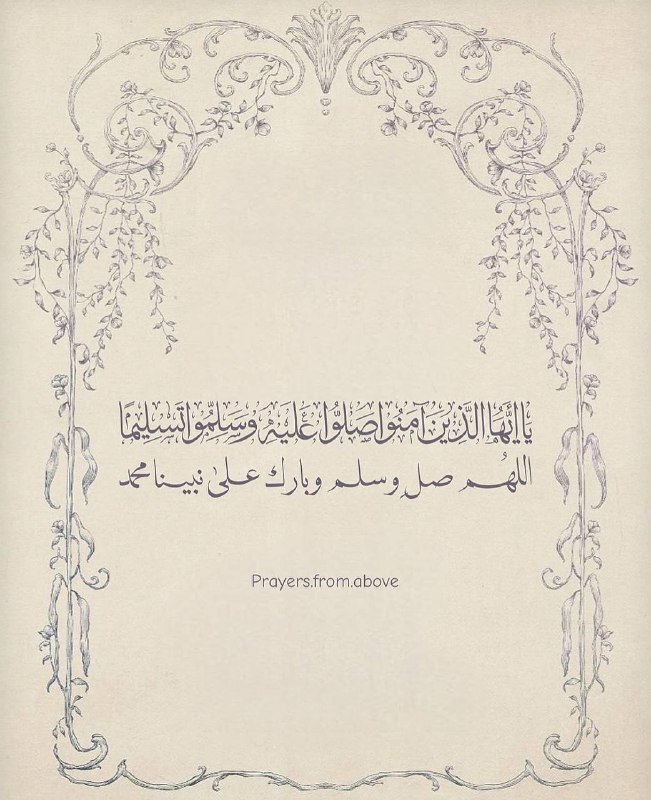 يَا أَيُّهَا الَّذِينَ آمَنُوا صَلُّوا عَلَيْهِ وَسَلِّمُوا تَسْلِيمًا
اللهُم صلِ وسلم وبارك على نبينا محمد
Prayers.from.above